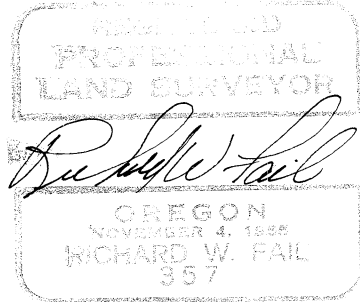 PROFESSIONAL
LAND SURVEYOR
Richard W Fail
OREGON
NOVEMBER 4, 1955
RICHARD W. FAIL
357